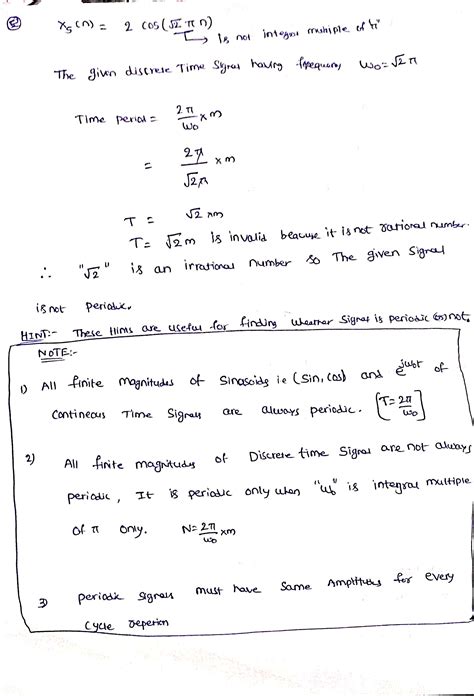 x₅(n) = 2 cos(√2 π n)
↳ is not integral multiple of 'π'
The given discrete Time Signal having frequency ω₀ = √2 π
Time period = 2π/ω₀ × m
= 2π/√2π × m
T = √2 × m
T = √2 m is invalid because it is not rational number.
∴ "√2" is an irrational number so The given Signal
is not periodic.
HINT:- These Hints are useful for finding wheather Signal is periodic (or) not.
NOTE:-
1) All finite magnitudes of Sinasoids ie (Sin, Cos) and e^jω₀t of
Contineous Time Signals are always periodic. [T = 2π/ω₀]
2) All finite magnitudes of Discrete time Signal are not always
periodic, It is periodic only when "ω₀" is integral multiple
of π only. N = 2π/ω₀ × m
3) periodic Signals must have Same Amplitudes for every
Cycle